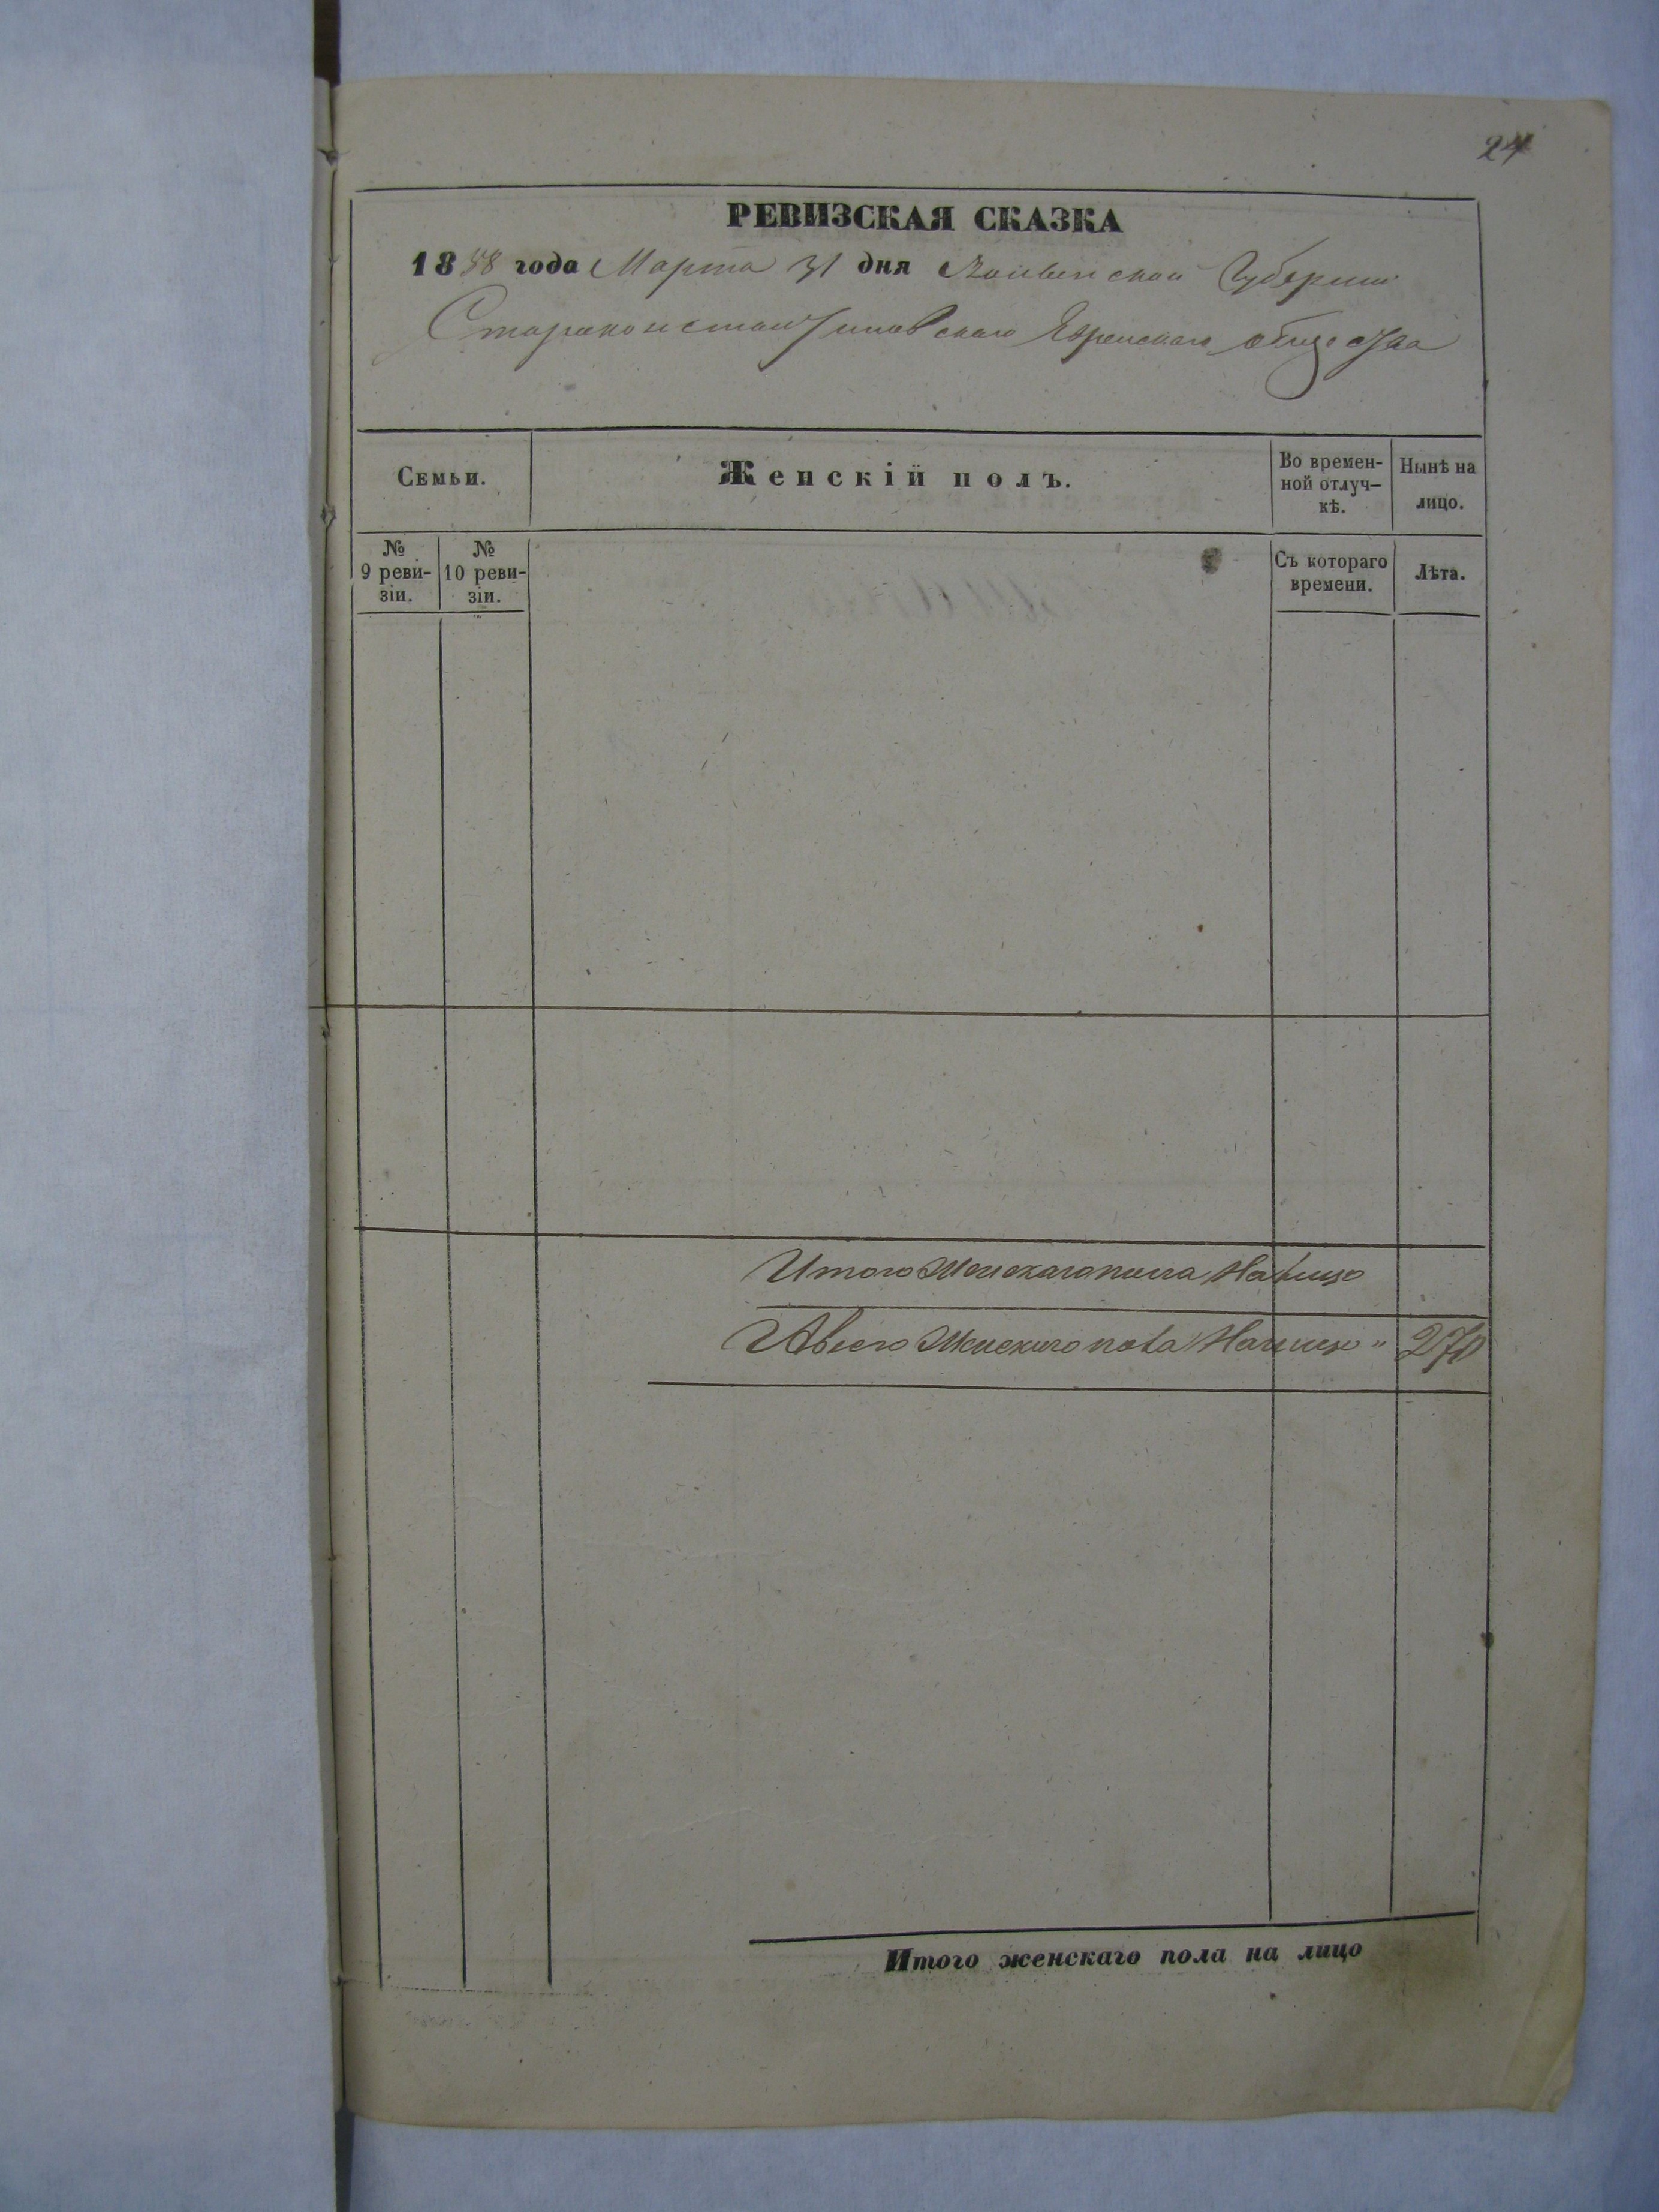 24
РЕВИЗСКАЯ СКАЗКА
1858 года Марта 31 дня Волынской Губернии
Староконстантиновскаго Еврейскаго общества
Семьи.
Женскій полъ.
Во времен-
ной отлуч-
кѣ.
Нынѣ на
лицо.
№
9 реви-
зіи.
№
10 реви-
зіи.
Съ котораго
времени.
Лѣта.
Итого Женскаго пола На лицо
Авсего Женскаго пола На лицо " 270
Итого женскаго пола на лицо